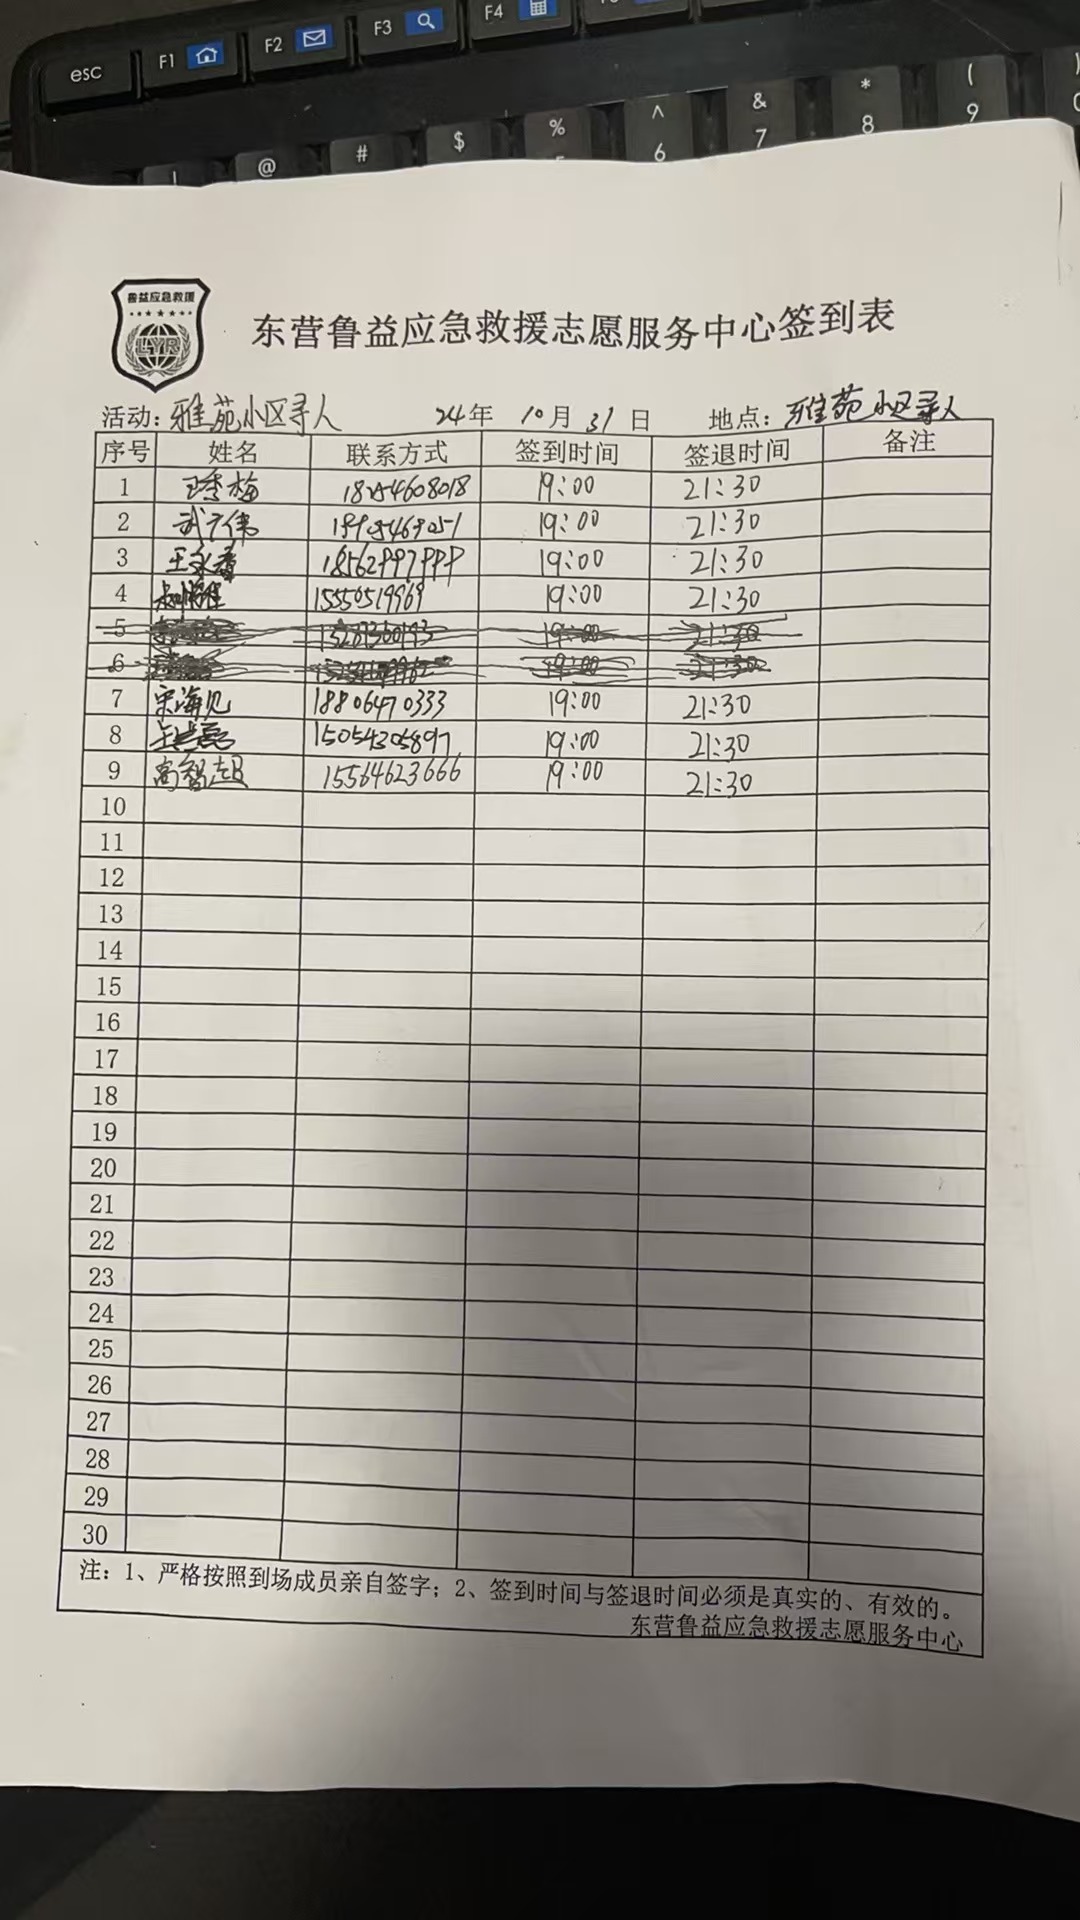 esc F1 F2 F3 F4
@ # $ % ^ 6 & 7 * 8 ( 9
鲁益应急救援
LYR
东营鲁益应急救援志愿服务中心签到表
活动：雅苑小区寻人 24年 10月 31日 地点：雅苑小区寻人
序号 姓名 联系方式 签到时间 签退时间 备注
1 王秀梅 18254608018 19:00 21:30
2 武广伟 19:00 21:30
3 王永春 19:00 21:30
4 15550519969 19:00 21:30
5 19:00 21:30
6 19:00 21:30
7 宋海见 18806470333 19:00 21:30
8 15054305897 19:00 21:30
9 高智超 15564623666 19:00 21:30
10
11
12
13
14
15
16
17
18
19
20
21
22
23
24
25
26
27
28
29
30
注：1、严格按照到场成员亲自签字；2、签到时间与签退时间必须是真实的、有效的。
东营鲁益应急救援志愿服务中心